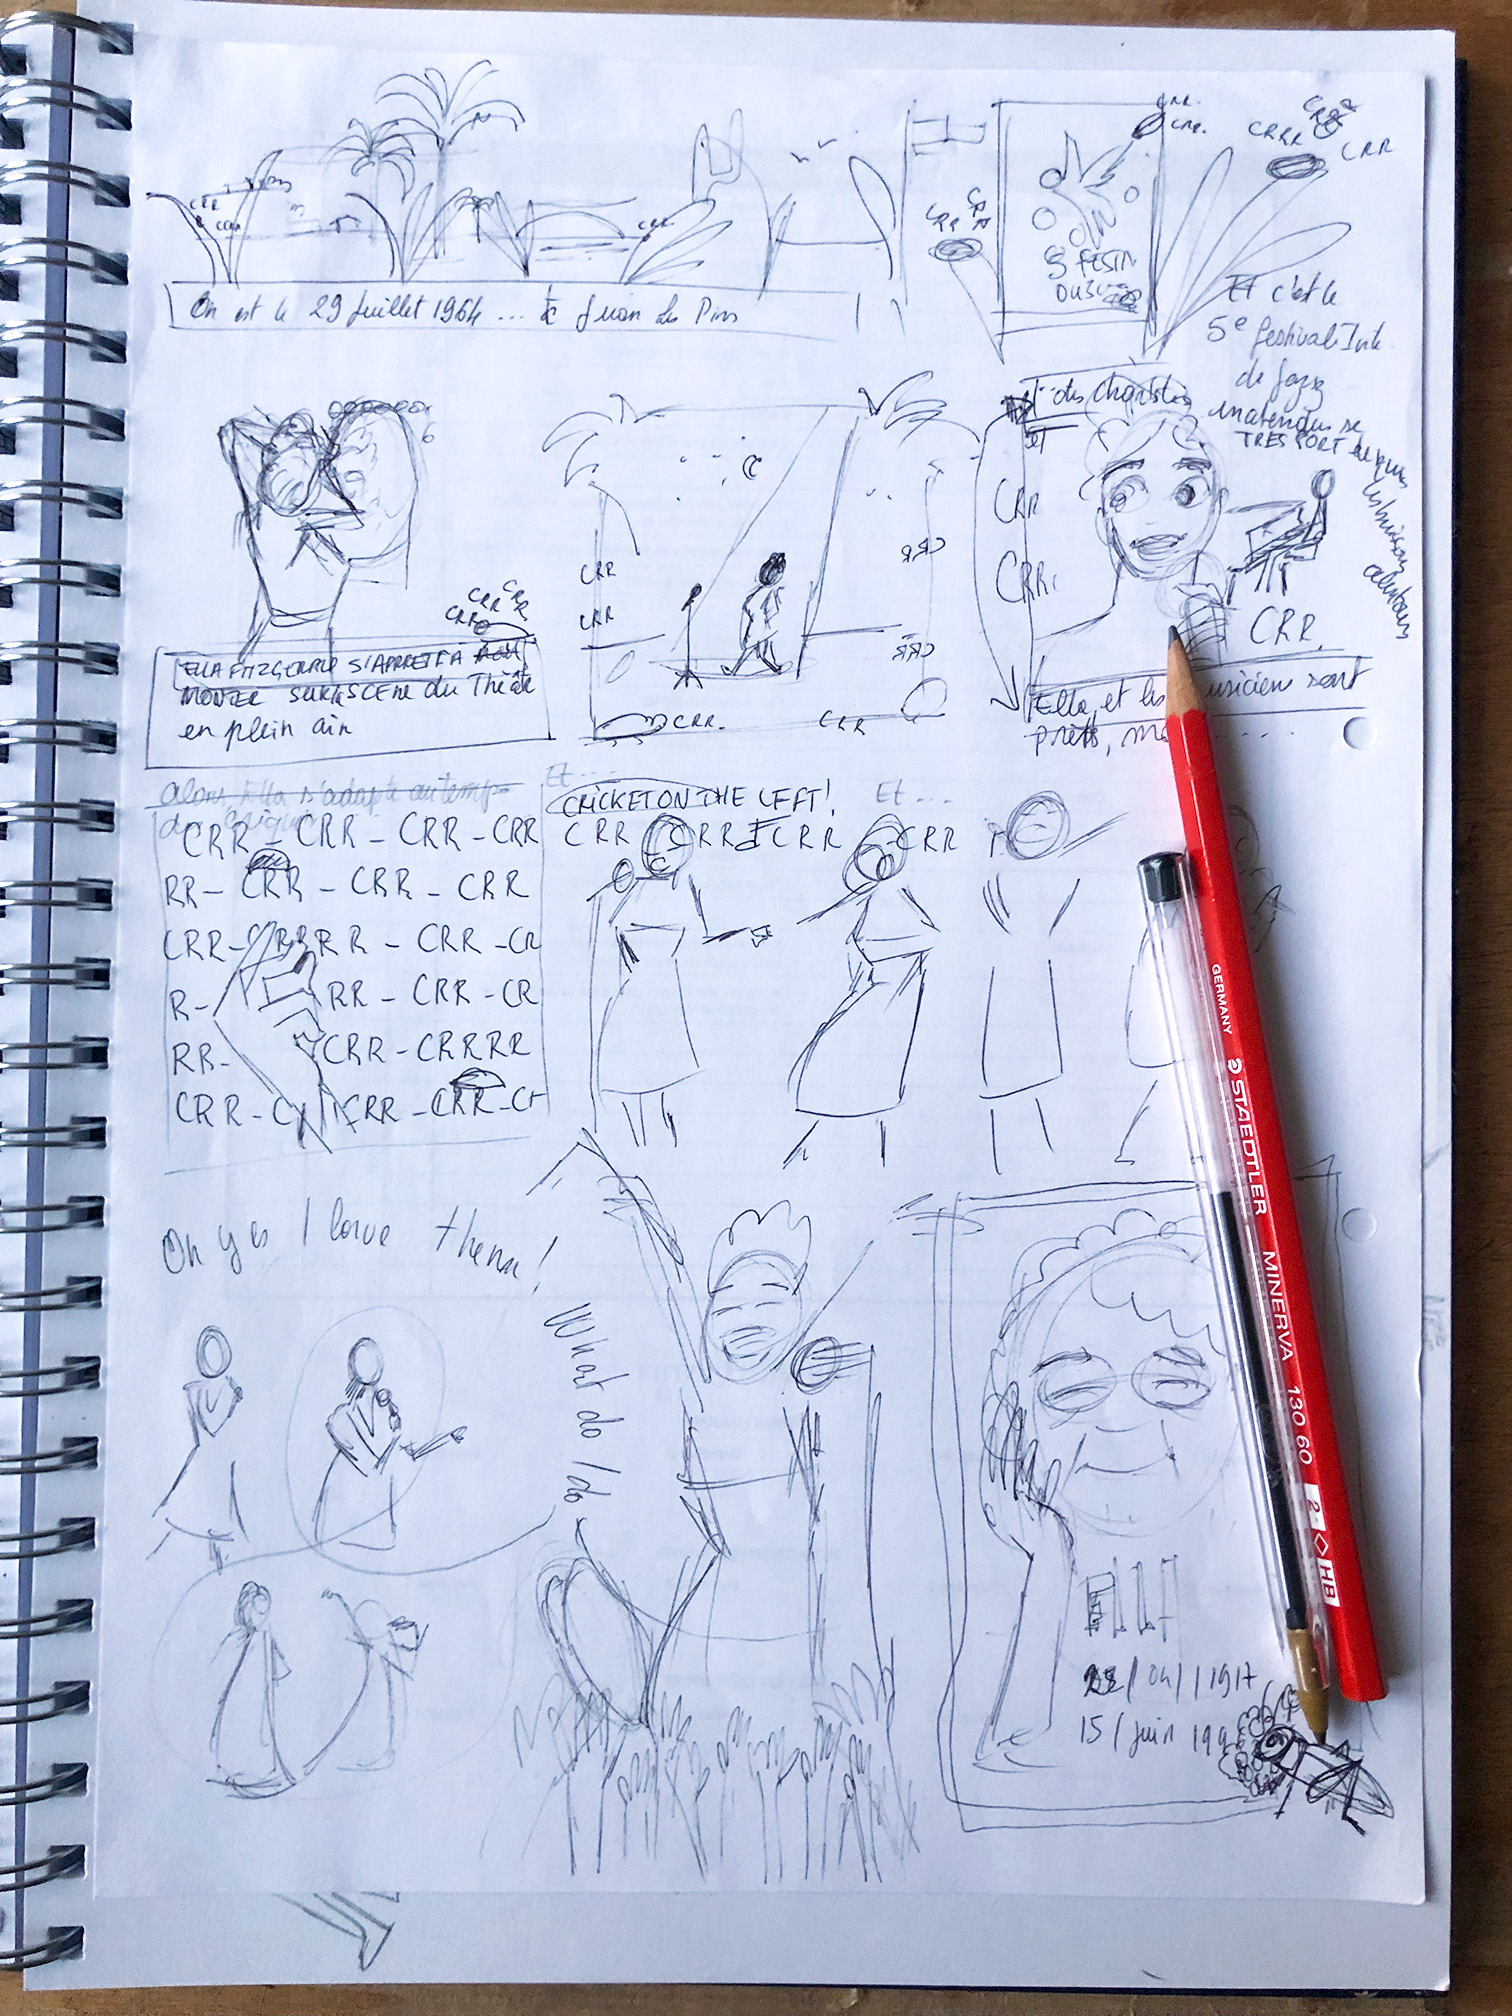 CRR
CRR
CRR
CRR
CRR.
CRR
CRR
CRRR
CRR
On est le 29 Juillet 1964 ... à Juan Les Pins
Et c'est le
5e festival Int.
de Jazz
TRES FORT
ELLA FITZGERALD S'APPRETE A
MONTER SUR SCENE du Théâtre
en plein air
CRR CRR
CRR
CRR
CRR
CRR
CRR
CRR.
CRR
CRR
CRR.
CRR.
Ella et les musiciens sont
prêts,
alors, Ella s'adapte au temps
CRR - CRR - CRR - CRR
RR - CRR - CRR - CRR
CRR - CRRRR - CRR - CR
R - RR - CRR - CR
RR - CRR - CRRRR
CRR - C CRR - CRR - CR
Et ...
CRICKET ON THE LEFT!
Et ...
CRR CRR CRR CRR
Oh yes I love them!
What do I do
ELLA
/04/1917
15/Juin 199
GERMANY STAEDTLER MINERVA 130 60 2 HB